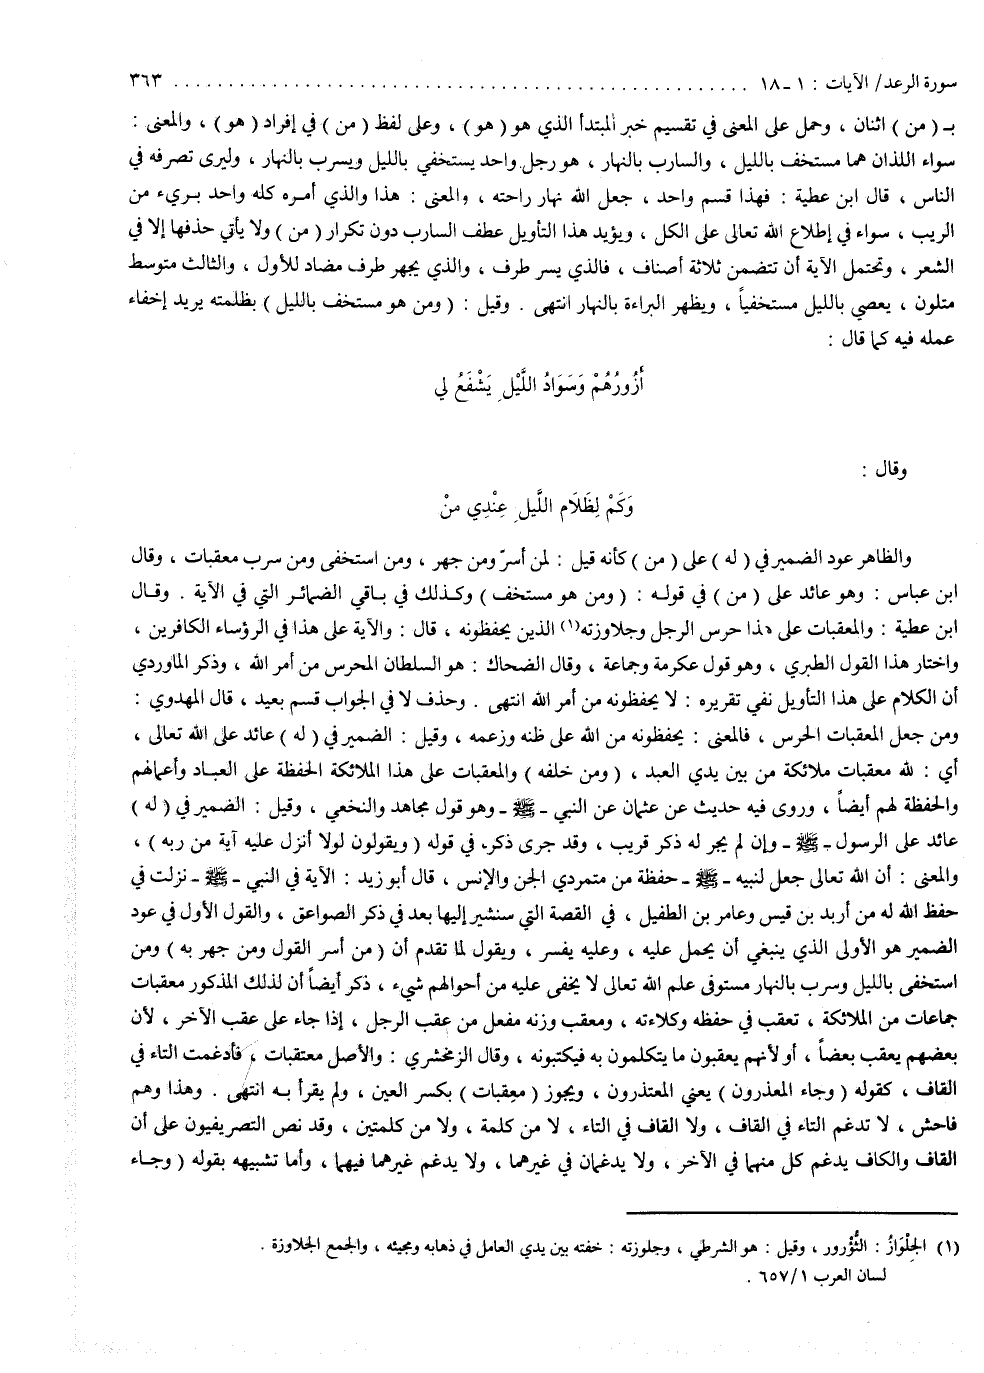 سورة الرعد/ الآيات : ١ ـ ١٨ . . . . . . . . . . . . . . . . . . . . . . . . . . . . . . . . . . . . . . . . . . . . . . . . . . . . . ٣٦٣
بـ ( من ) اثنان ، وحمل على المعنى في تقسيم خبر المبتدأ الذي هو ( هو ) ، وعلى لفظ ( من ) في إفراد ( هو ) ، والمعنى :
سواء اللذان هما مستخف بالليل ، والسارب بالنهار ، هو رجل واحد يستخفي بالليل ويسرب بالنهار ، وليرى تصرفه في
الناس ، قال ابن عطية : فهذا قسم واحد ، جعل الله نهار راحته ، والمعنى : هذا والذي أمره كله واحد بريء من
الريب ، سواء في إطلاع الله تعالى على الكل ، ويؤيد هذا التأويل عطف السارب دون تكرار ( من ) ولا يأتي حذفها إلا في
الشعر ، وتحتمل الآية أن تتضمن ثلاثة أصناف ، فالذي يسر طرف ، والذي يجهر طرف مضاد للأول ، والثالث متوسط
متلون ، يعصي بالليل مستخفياً ، ويظهر البراءة بالنهار انتهى . وقيل : ( ومن هو مستخف بالليل ) بظلمته يريد إخفاء
عمله فيه كما قال :
أَزُورُهُمْ وَسَوَادُ اللَّيْلِ يَشْفَعُ لي
وقال :
وَكَمْ لِظَلَامِ اللَّيلِ عِنْدِي منْ
والظاهر عود الضمير في ( له ) على ( من ) كأنه قيل : لمن أسرّ ومن جهر ، ومن استخفى ومن سرب معقبات ، وقال
ابن عباس : وهو عائد على ( من ) في قوله : ( ومن هو مستخف ) وكذلك في باقي الضمائر التي في الآية . وقال
ابن عطية : والمعقبات على هذا حرس الرجل وجلاوزته(١) الذين يحفظونه ، قال : والآية على هذا في الرؤساء الكافرين ،
واختار هذا القول الطبري ، وهو قول عكرمة وجماعة ، وقال الضحاك : هو السلطان المحرس من أمر الله ، وذكر الماوردي
أن الكلام على هذا التأويل نفي تقريره : لا يحفظونه من أمر الله انتهى . وحذف لا في الجواب قسم بعيد ، قال المهدوي :
ومن جعل المعقبات الحرس ، فالمعنى : يحفظونه من الله على ظنه وزعمه ، وقيل : الضمير في ( له ) عائد على الله تعالى ،
أي : لله معقبات ملائكة من بين يدي العبد ، ( ومن خلفه ) والمعقبات على هذا الملائكة الحفظة على العباد وأعمالهم
والحفظة لهم أيضاً ، وروى فيه حديث عن عثمان عن النبي ـ ﷺ ـ وهو قول مجاهد والنخعي ، وقيل : الضمير في ( له )
عائد على الرسول ـ ﷺ ـ وإن لم يجر له ذكر قريب ، وقد جرى ذكره في قوله ( ويقولون لولا أنزل عليه آية من ربه ) ،
والمعنى : أن الله تعالى جعل لنبيه ـ ﷺ ـ حفظة من متمردي الجن والإنس ، قال أبو زيد : الآية في النبي ـ ﷺ ـ نزلت في
حفظ الله له من أربد بن قيس وعامر بن الطفيل ، في القصة التي سنشير إليها بعد في ذكر الصواعق ، والقول الأول في عود
الضمير هو الأولى الذي ينبغي أن يحمل عليه ، وعليه يفسر ، ويقول لما تقدم أن ( من أسر القول ومن جهر به ) ومن
استخفى بالليل وسرب بالنهار مستوفى علم الله تعالى لا يخفى عليه من أحوالهم شيء ، ذكر أيضاً أن لذلك المذكور معقبات
جماعات من الملائكة ، تعقب في حفظه وكلاءته ، ومعقب وزنه مفعل من عقب الرجل ، إذا جاء على عقب الآخر ، لأن
بعضهم يعقب بعضاً ، أو لأنهم يعقبون ما يتكلمون به فيكتبونه ، وقال الزمخشري : والأصل معتقبات ، فأدغمت التاء في
القاف ، كقوله ( وجاء المعذرون ) يعني المعتذرون ، ويجوز ( معِقبات ) بكسر العين ، ولم يقرأ به انتهى . وهذا وهم
فاحش ، لا تدغم التاء في القاف ، ولا القاف في التاء ، لا من كلمة ، ولا من كلمتين ، وقد نص التصريفيون على أن
القاف والكاف يدغم كل منهما في الآخر ، ولا يدغمان في غيرهما ، ولا يدغم غيرهما فيهما ، وأما تشبيهه بقوله ( وجاء
(١) الجِلْوَازُ : الثُّؤْرور ، وقيل : هو الشرطي ، وجلوزته : خفته بين يدي العامل في ذهابه ومجيئه ، والجمع الجلاوزة .
لسان العرب ١/ ٦٥٧ .